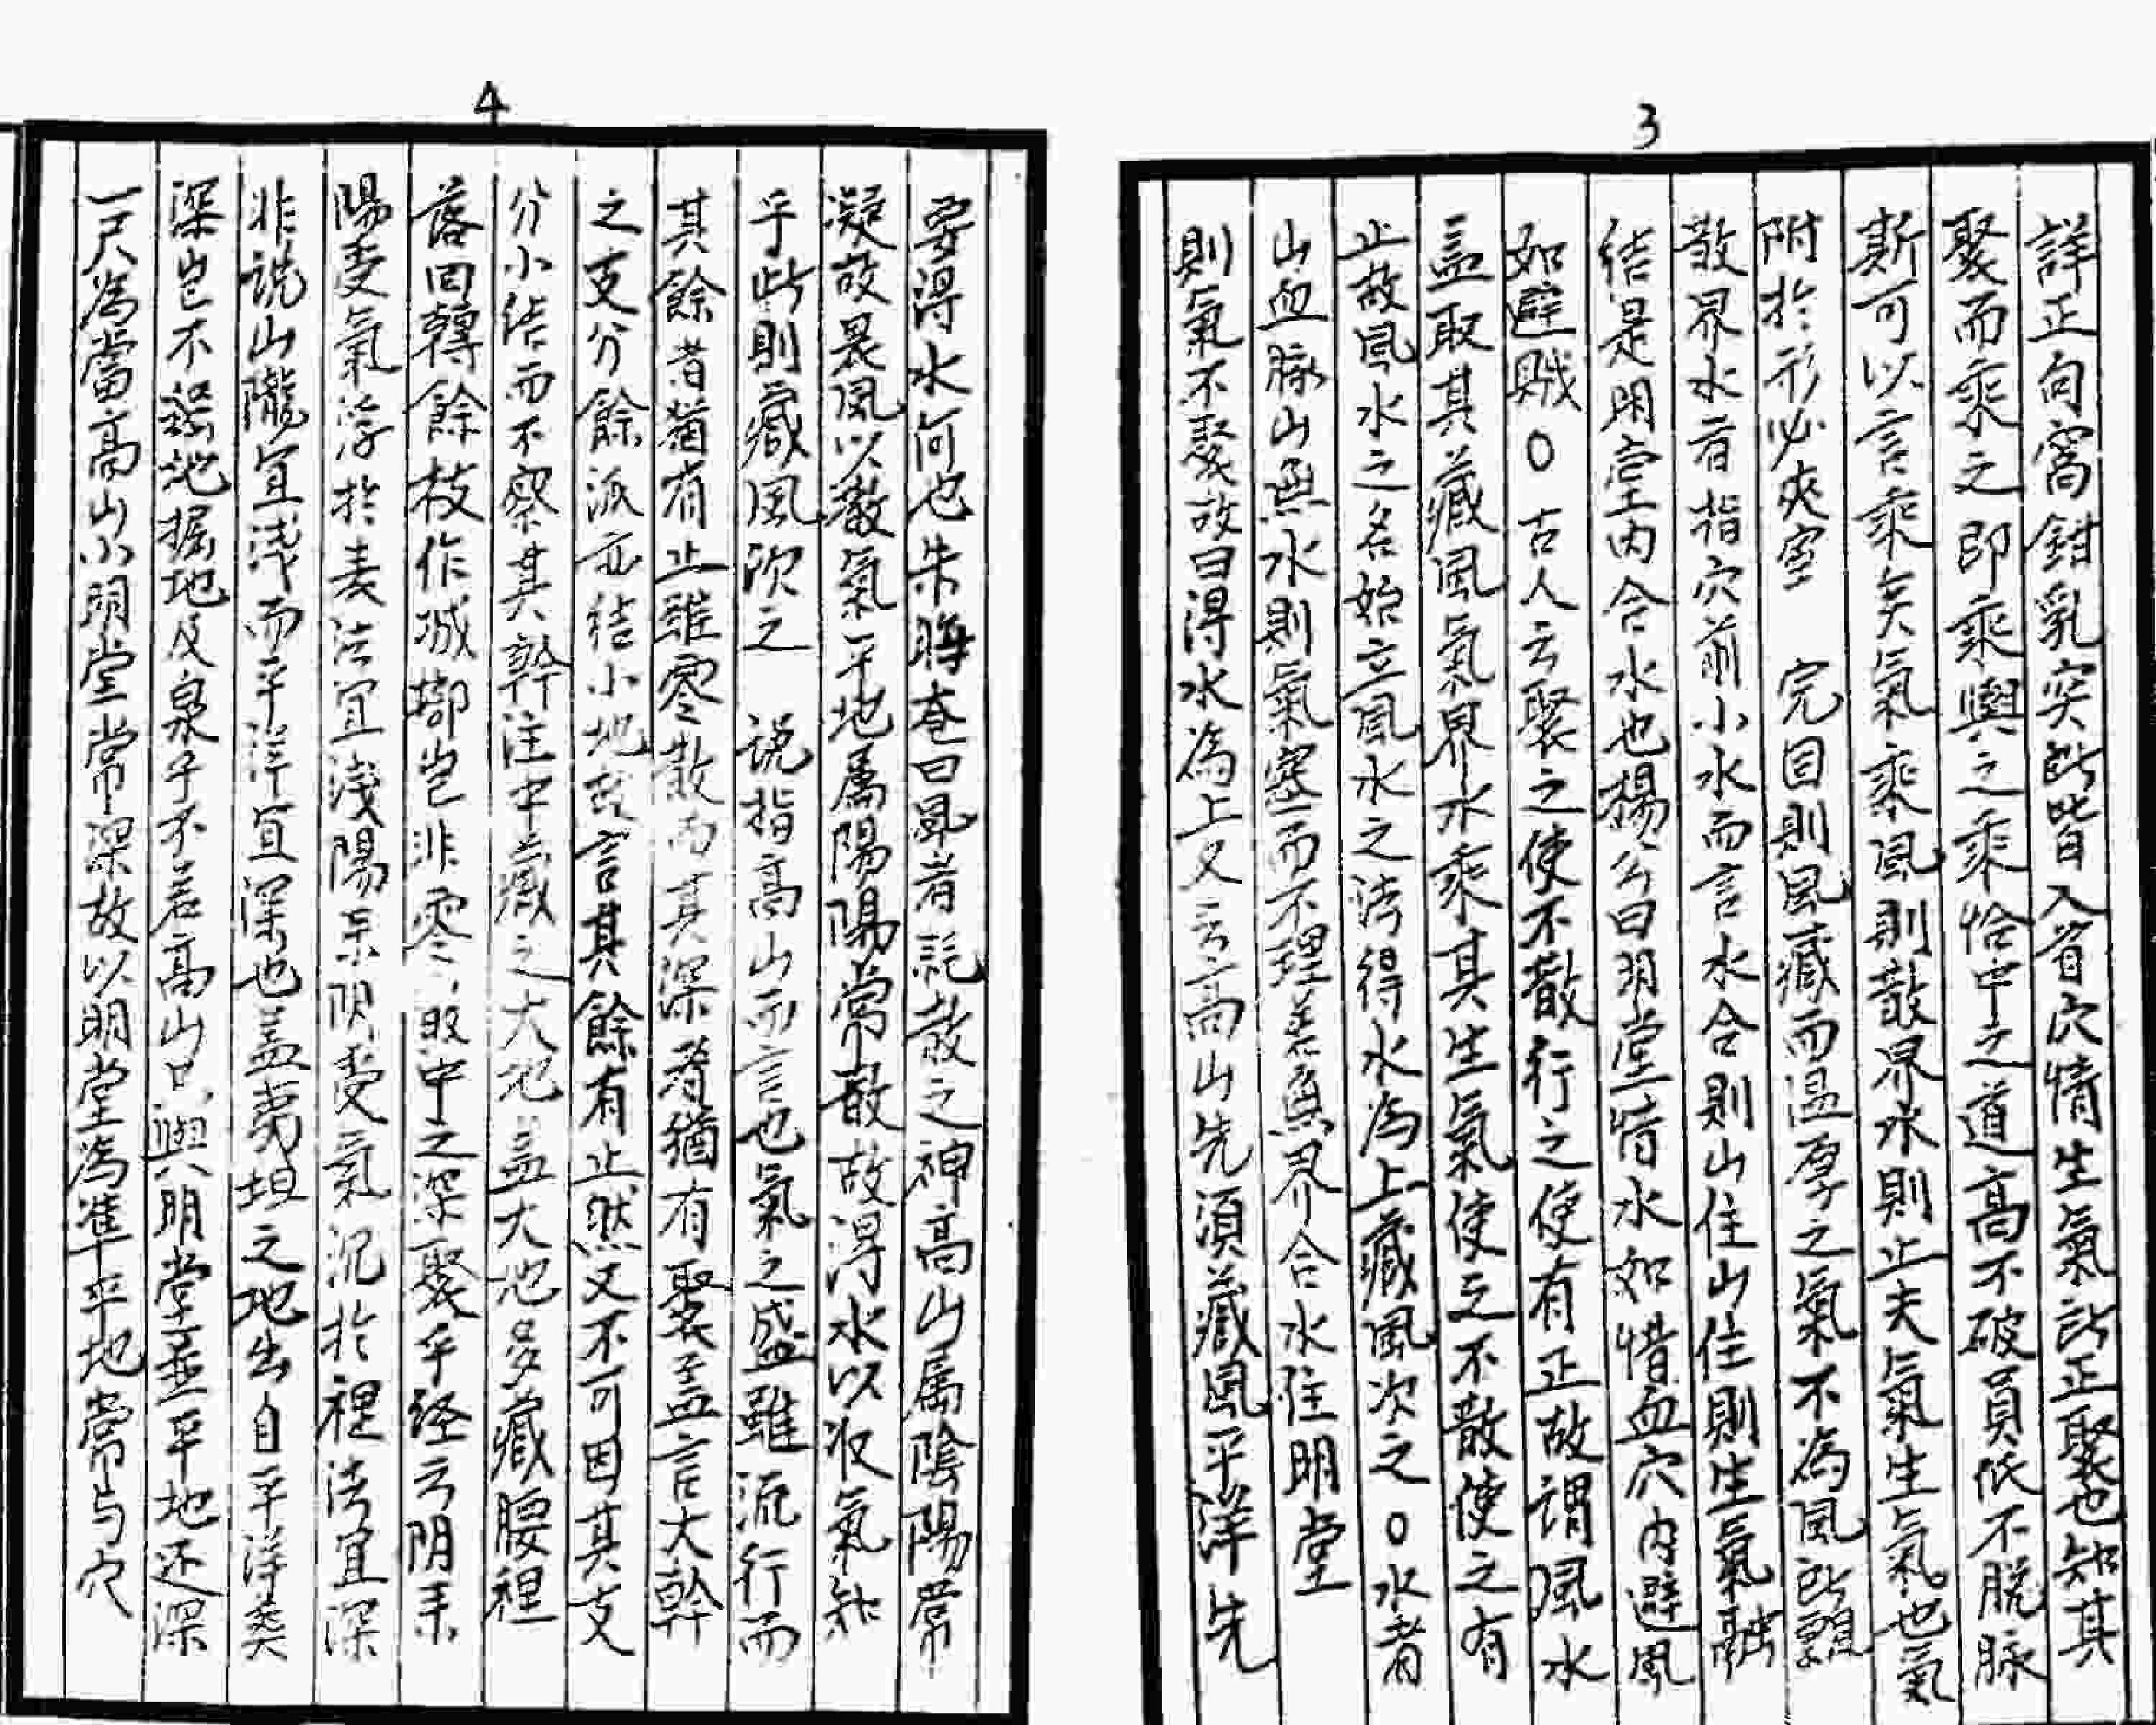 3
詳正向窩鉗乳突此皆入首穴情生氣所正聚也知其
聚而乘之即乘輿之乘恰中之道高不破頁低不脫脉
斯可以言乘矣氣乘風則散界水則止夫氣生氣也氣
附於形必夾室 完固則風藏而温厚之氣不為風所飄
散界水者指穴前小水而言水合則山住山住則生氣融
結是明堂内合水也楊公曰明堂惜水如惜血穴内避風
如避賊○古人云聚之使不散行之使有正故謂風水
盖取其藏風氣界水乘其生氣使之不散使之有
止故風水之名始立風水之法得水為上藏風次之○水者
山血脉山無水則氣塞而不理若無界合水注明堂
則氣不聚故曰得水為上又云高山先須藏風平洋先
4
要得水何也朱晦菴曰風者耗散之神高山属陰陽常
凝故畏風以散氣平地属陽陽常散故得水以收氣知
乎此則藏風次之 説指高山而言也氣之盛雖流行而
其餘者猶有止雖零散而其深者猶有聚盖言大幹
之支分餘派亦結小地故言其餘有止然又不可因其支
分小结而不察其幹注中藏之大地盖大地多藏腰裡
落回轉餘枝作城郭岂非零散中之深聚乎经云阴来
陽受氣浮於表法宜淺陽来阴受氣沉於裡法宜深
非说山隴宜淺而平洋宜深也盖夷坦之地出自平洋葬
深岂不 池掘地及泉乎不若高山只與明堂並平地还深
一尺為當高山小明堂常深故以明堂為準平地常与穴